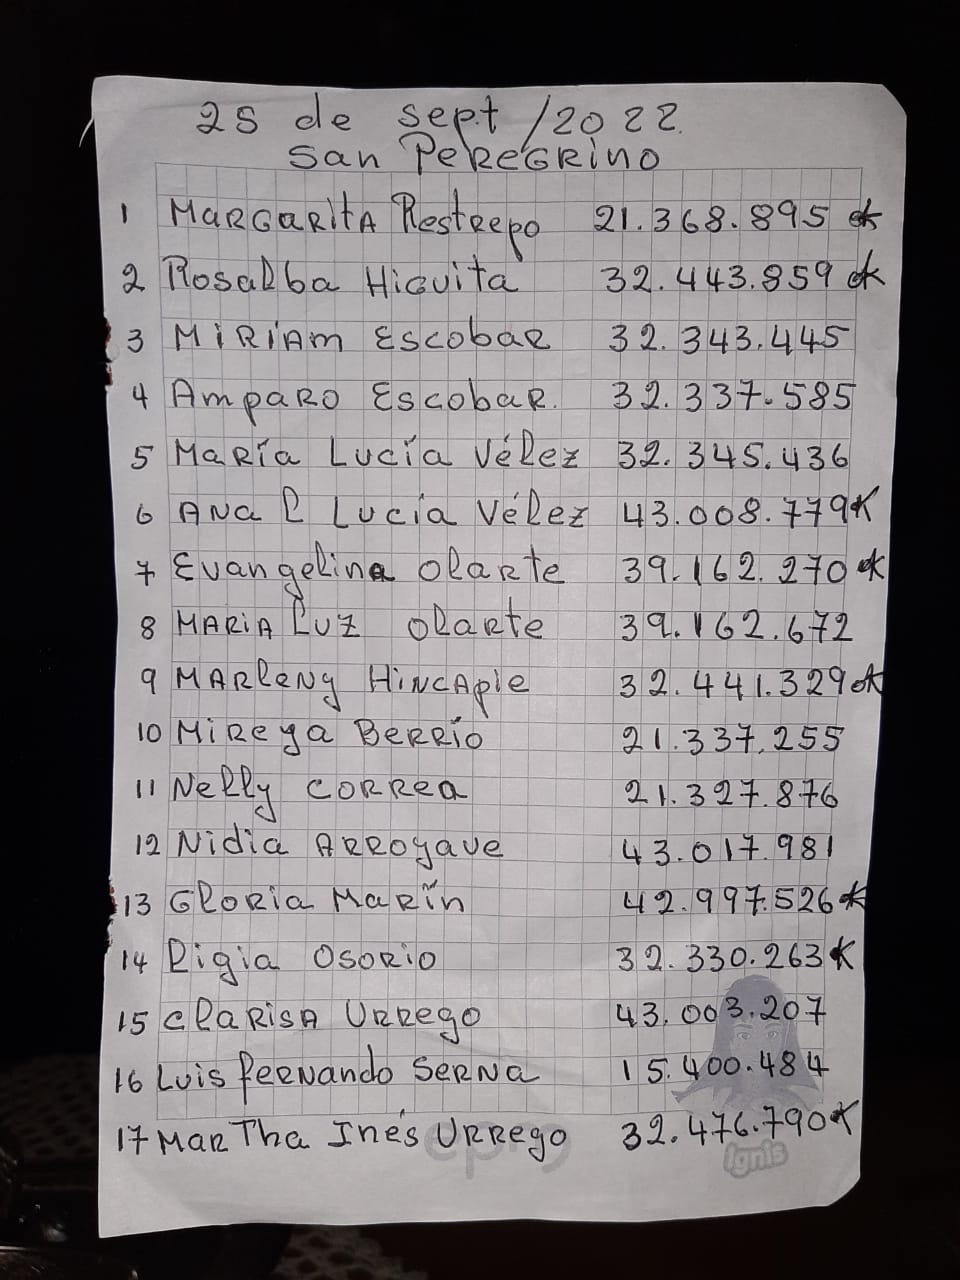 25 de sept/2022.
San Peregrino
1 Margarita Restrepo 21.368.895 ok
2 Rosalba Higuita 32.443.859 ok
3 Miriam Escobar 32.343.445
4 Amparo Escobar. 32.337.585
5 María Lucía Vélez 32.345.436
6 Ana L Lucía Vélez 43.008.779 K
7 Evangelina Olarte 39.162.270 ok
8 Maria Luz Olarte 39.162.672
9 Marleny Hincapie 32.441.329 ok
10 Mireya Berrío 21.337.255
11 Nelly Correa 21.327.876
12 Nidia Arroyave 43.017.981
13 Gloria Marín 42.997.526 ok
14 Ligia Osorio 32.330.263 K
15 Clarisa Urrego 43.003.207
16 Luis Fernando Serna 15.400.484
17 Martha Inés Urrego 32.476.790 K
epm
Ignis